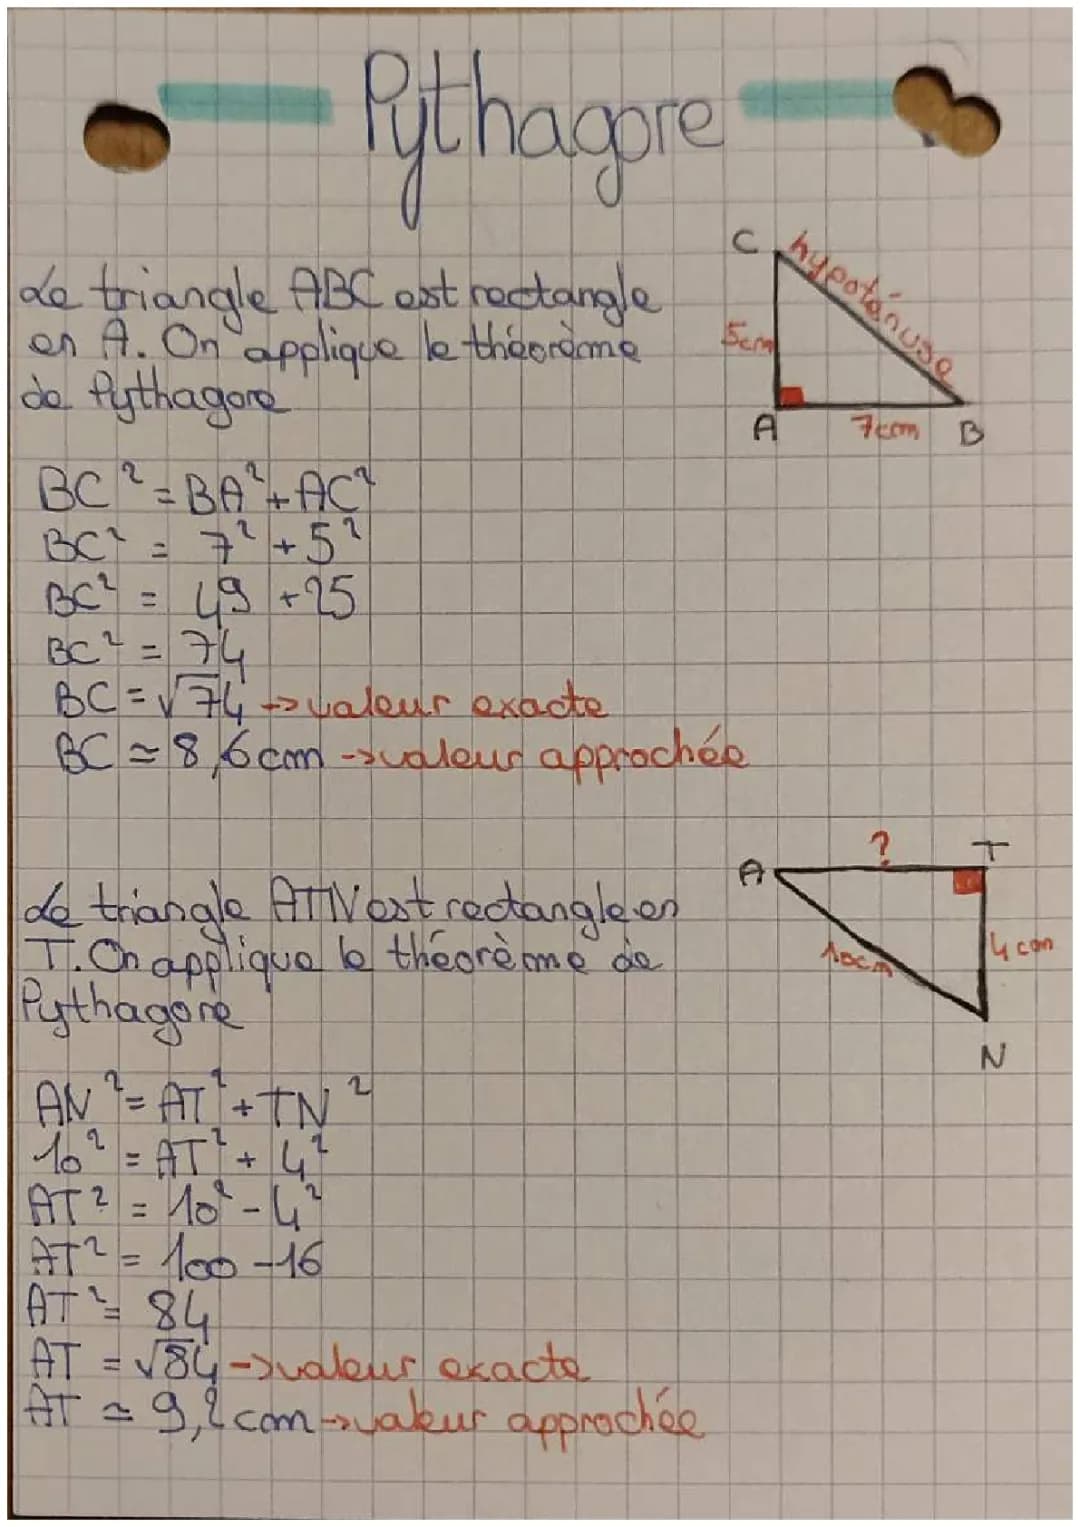 Pythagore
Le triangle ABC est rectangle
en A. On applique le théorème
de Pythagore
C
hypoténuse
5cm
A
7cm
B
BC² = BA² + AC²
BC² = 7² + 5²
BC² = 49 + 25
BC² = 74
BC = √74 → valeur exacte
BC ≃ 8,6 cm → valeur approchée
Le triangle ATN est rectangle en
T. On applique le théorème de
Pythagore
A
?
T
10cm
4 cm
N
AN² = AT² + TN²
10² = AT² + 4²
AT² = 10² - 4²
AT² = 100 - 16
AT² = 84
AT = √84 → valeur exacte
AT ≃ 9,2 cm → valeur approchée